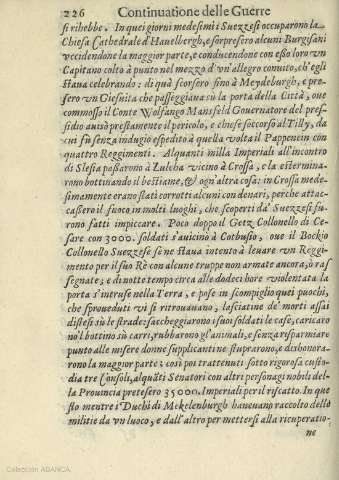 226 Continuatione delle Guerre
si rihebbe. In quei giorni medesimi i Suezzesi occuparono la
Chiesa Cathedrale d'Hauelbergh, e sorpresero alcuni Burgsani
vccidendone la maggior parte, e conducendone con esso loro vn
Capitano colto à punto nel mezzo d'vn'allegro conuito, ch'egli
staua celebrando: di quà scorsero sino à Meydeburgh, e pre-
sero vn Giesuita che passeggiaua sù la porta della Città, oue
commosso il Conte Wolfango Mansfeld Gouernatore del pres-
sidio auisò prestamente il pericolo, e chiese soccorso al Tilly, da
cui fu senza indugio espedito à quella volta il Pappencin con
quattro Reggimenti. Alquanti milla Imperiali all'incontro
di Slesia passarono à Zulcha vicino à Crossa, e la estermina-
rono bottinando il bestiame, & ogn'altra cosa: in Crossa mede-
simamente erano stati corrotti alcuni con denari, perche attac-
cassero il fuoco in molti luoghi, che scoperti da' Suezzesi fu-
rono fatti impiccare. Poco doppo il Getz Collonello di Ce-
sare con 3000. soldati s'auicinò à Cotbusio, oue il Bockio
Collonello Suezzese se ne staua intento à leuare vn Reggi-
mento per il suo Rè con alcune truppe non armate ancora, ò ras
segnate; e di notte tempo circa alle dodeci hore violentata la
porta s'intruse nella Terra, e pose in scompiglio quei puochi,
che sproueduti vi si ritrouauano, lasciatine de' morti assai
distesi sù le strade: saccheggiarono i suoi soldati le case, caricaro
no'l bottino sù carri, rubbarono gl'animali, e senza risparmiare
punto alle misere donne supplicanti ne stuprarono, e dishonora-
rono la maggior parte; così poi trattenuti sotto rigorosa custo-
dia tre Consoli, alquāti Senatori con altri personagi nobili del-
la Prouincia pretesero 35000. Imperiali per il riscatto. In que
sto mentre i Duchi di Mekelenburgh haueuano raccolto della
militie da vn luoco, e dall'altro per mettersi alla ricuperatio-
ne
Colección ABANCA